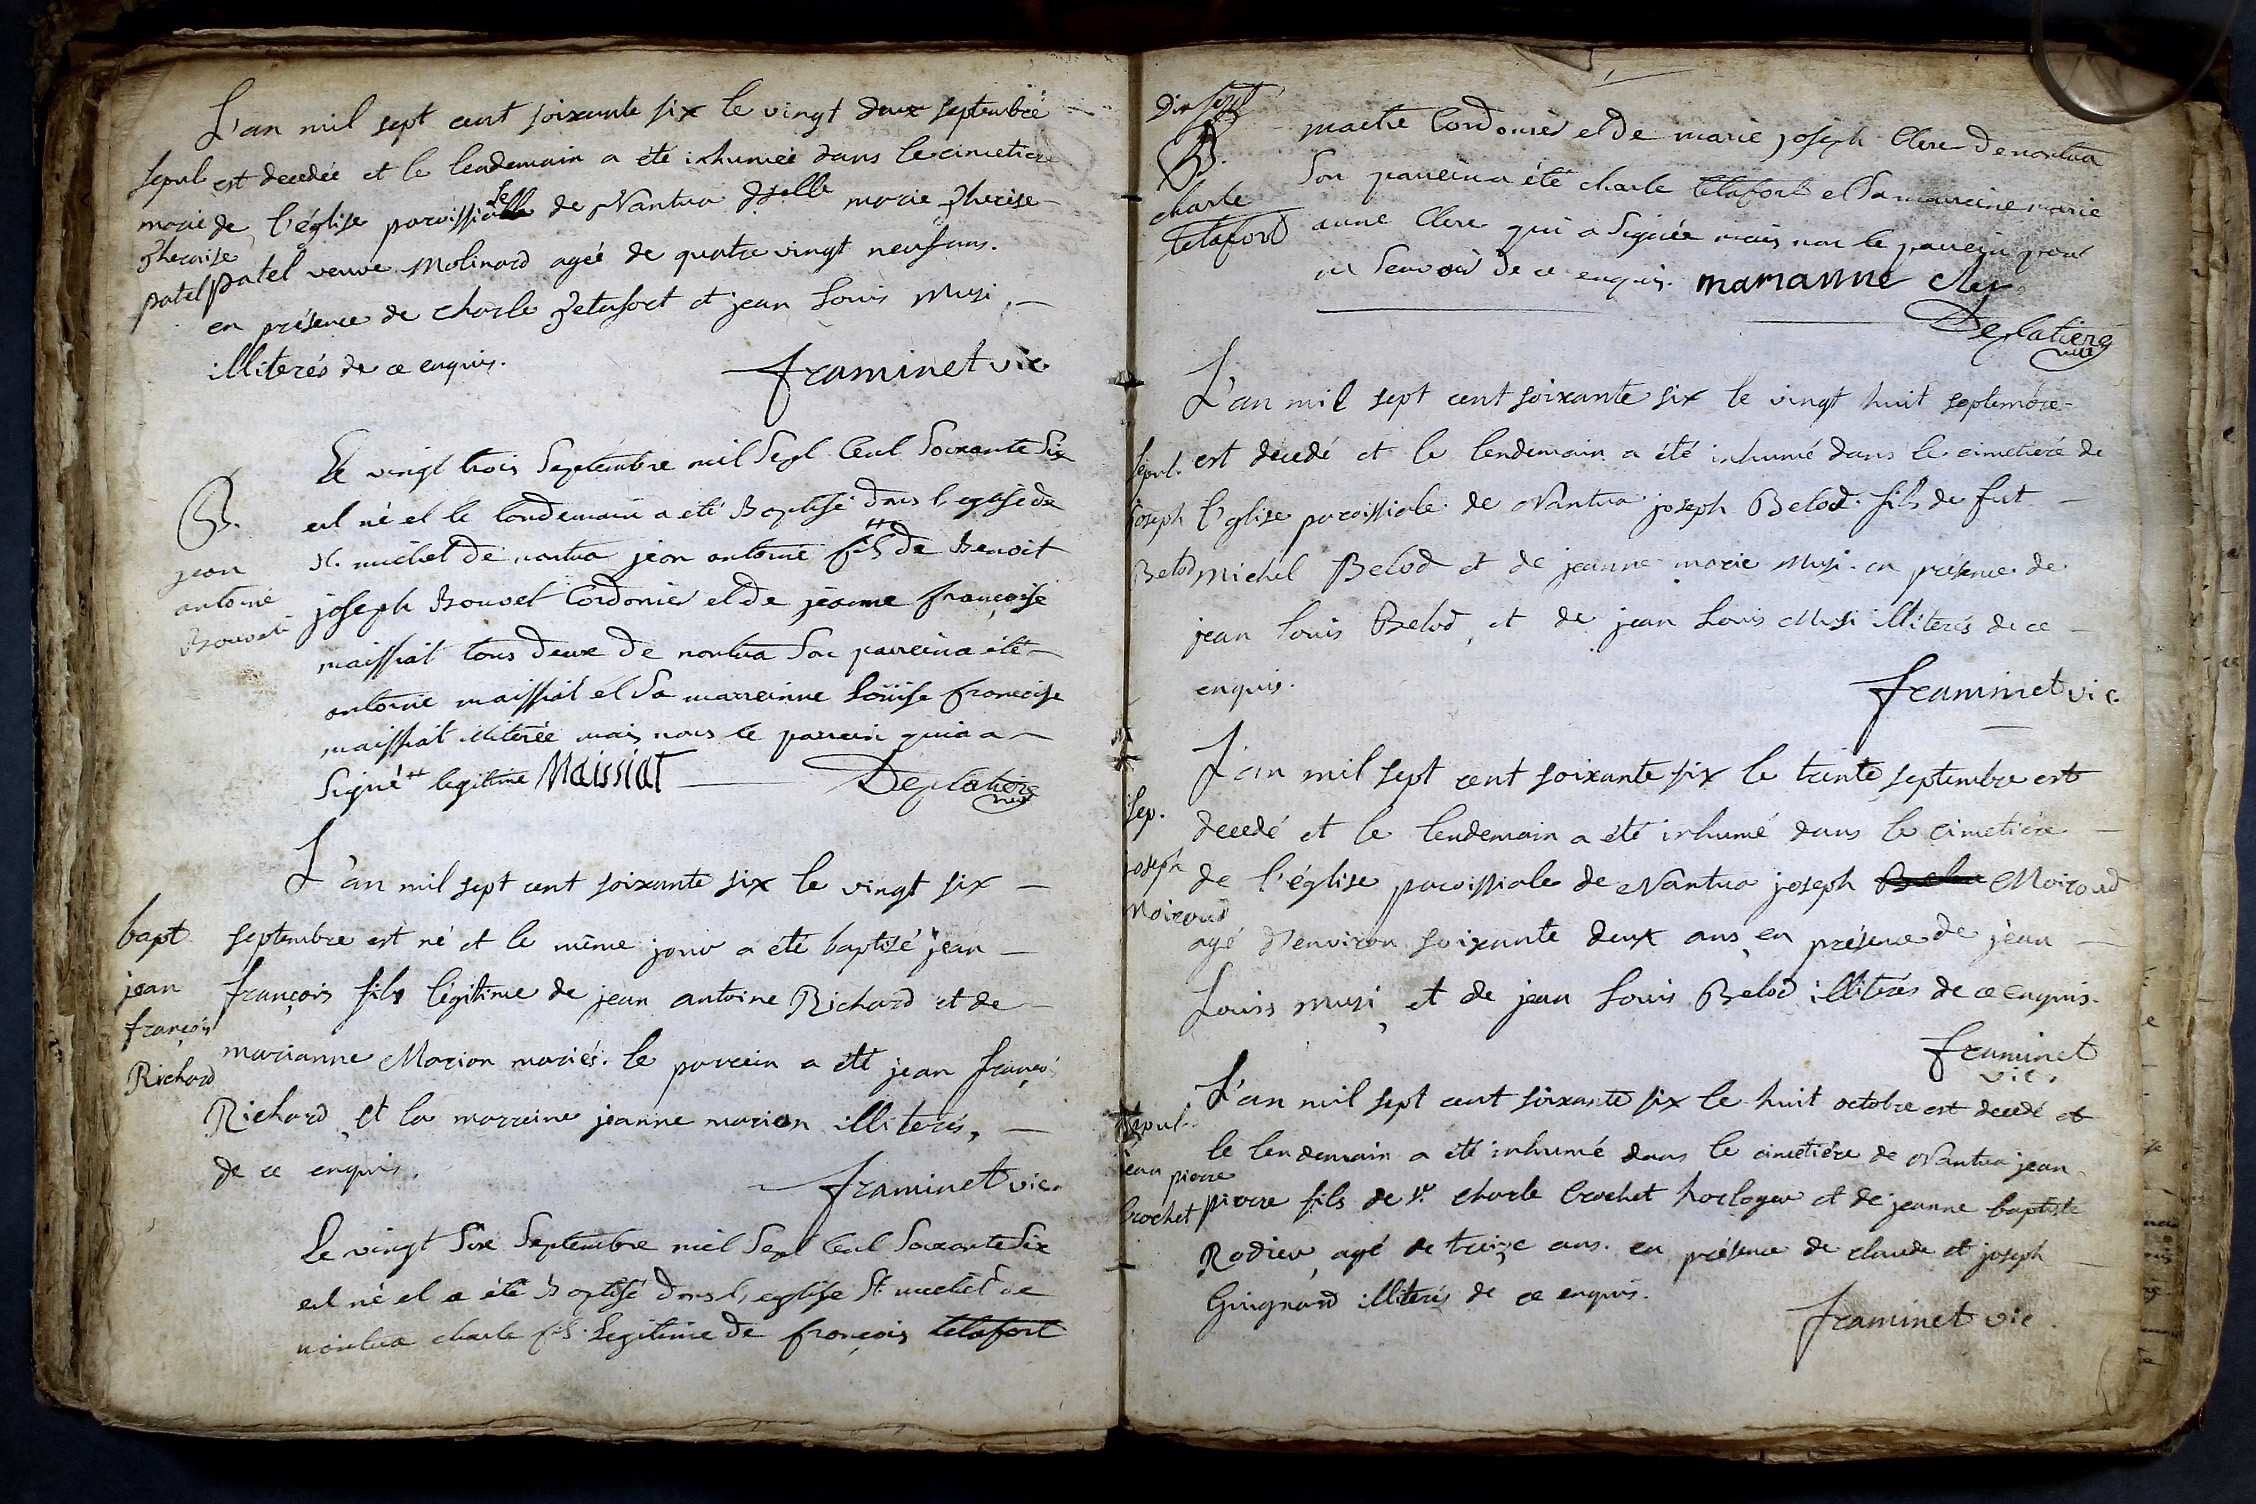 L'an mil sept cent soixante six le vingt deux septembre
sepul est decedée et le lendemain a été inhumée dans le cimetiere
marie de l'église paroissialle de Nantua dselle marie Therese
Theraise
patel patel veuve Molinard agée de quatre vingt neuf ans.
en présence de charle Tetafort et jean Louis Musi,
illiterés de ce enquis.
framinet vic.
Le vingt trois Septembre mil Sept Cent Soixante Six
B. est né et le londemain a été Baptisé dans l'eglise de
jean St. michel de nantua jean antoine fils ++ de Benoit
antoine joseph Bouvet Cordonier et de jeanne françoise
Bouvet
maissiat tous deux de nantua Son parrein a été
antoine maissiat et Sa marreinne Loüise françoise
maissiat illiterée mais nous le parrein qui a
Signé ++ legitime Maissiat Deplatiere
vic
L'an mil sept cent soixante six le vingt six
bapt septembre est né et le même jour a été baptisé jean
jean françois fils légitime de jean antoine Richard et de
françois
marianne Marion mariés. le parrein a été jean françois
Richard
Richard, et la marreine jeanne marion illiterés,
de ce enquis.
framinet vic.
Le vingt Six Septembre mil Sept Cent Soixante Six
est né et a été Baptisé dans l'eglise St. michel de
nantua charle fils Legitime de françois tetafort
Dix sept
B. maetre Cordonier et de marie joseph Clere de nantua
charle Son parrein a été charle tetafort et Sa marreine marie
tetafort anne Clere qui a Signée mais non le parrein pour
ne Scavoir de ce enquis. marianne cler
Deplatiere
vic
L'an mil sept cent soixante six le vingt huit septembre
sepul. est décedé et le lendemain a été inhumé dans le cimetiére de
joseph l'eglise paroissiale de Nantua joseph Belod fils de fut
Belod michel Belod et de jeanne marie Musi. en présence de
jean Louis Belod, et de jean Louis Musi illiterés de ce
enquis.
framinet vic.
L'an mil sept cent soixante six le trente septembre est
sep. decedé et le lendemain a été inhumé dans le cimetiére
joseph de l'église paroissiale de Nantua joseph Moiroud
Moiroud
agé d'environ soixante deux ans, en présence de jean
Louis musi, et de jean Louis Belod illiterés de ce enquis.
framinet
vic.
L'an mil sept cent soixante six le huit octobre est decedé et
sepul. le lendemain a été inhumé dans le cimetiére de Nantua jean
jean pierre
Crochet pierre fils de sr. charle Crochet horloger et de jeanne baptiste
Rodieu, agé de treize ans. en présence de claude et joseph
Guignard illiterés de ce enquis.
framinet vic.